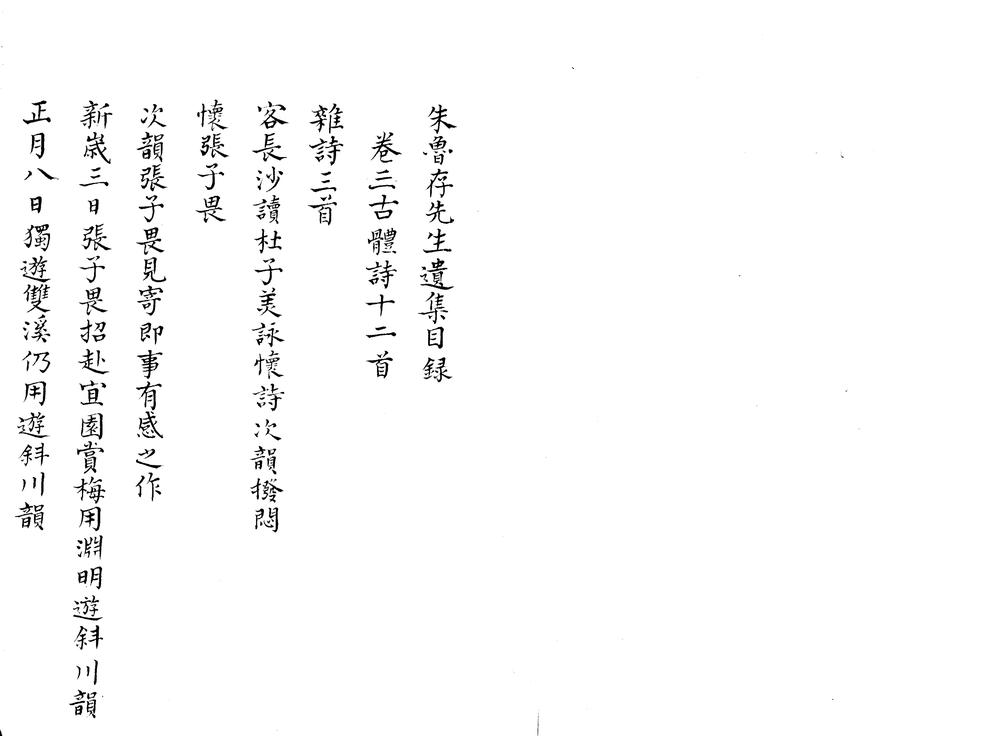 朱魯存先生遺集目録
卷三古體詩十二首
雜詩三首
客長沙讀杜子美詠懷詩次韻撥悶
懷張子畏
次韻張子畏見寄即事有感之作
新歲三日張子畏招赴宜園賞梅用淵明遊斜川韻
正月八日獨遊雙溪仍用遊斜川韻